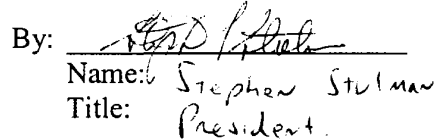 By:
Name: Stephen Stulman
Title: President.